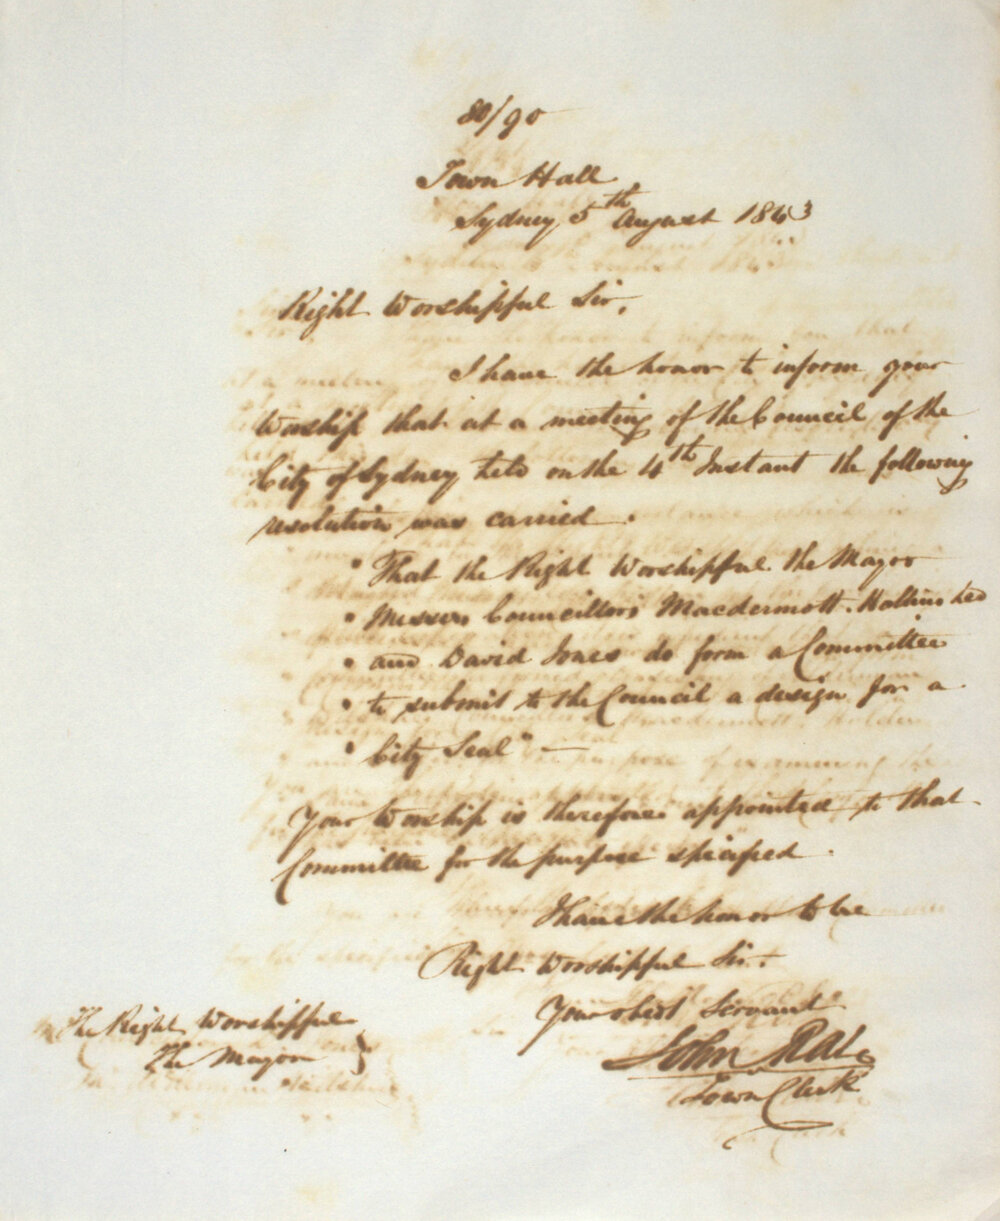 80/90
Town Hall
Sydney 5th August 1843
Right Worshipful Sir,
I have the honor to inform your
Worship that at a meeting of the Council of the
City of Sydney held on the 4th Instant the following
resolution was carried.
" That the Right Worshipful the Mayor
" Messrs Councillors Macdermott. Hollinshed
" and David Jones do form a Committee
" to submit to the Council a design for a
" City Seal" —
Your Worship is therefore appointed to that
Committee for the purpose specified.
I have the honor to be
Right Worshipful Sir.
Your obedt Servant
John Rae
Town Clerk
The Right Worshipful
The Mayor }